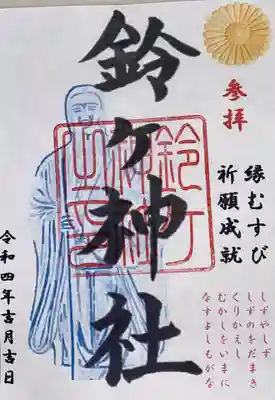 参拝
縁むすび
祈願成就
しずやしず
しずのをだまき
くりかえし
むかしをいまに
なすよしもがな
鈴ヶ神社
鈴ヶ
神社
之印
令和四年吉月吉日